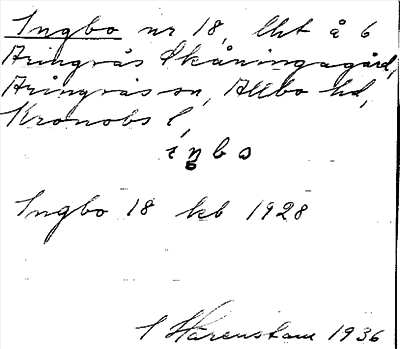 Ingbo nr 18, Uht å 6
Aringsås Skåningagård,
Aringsås sn, Allbo hd,
Kronobs l,
iŋbo
Ingbo 18 kb 1928
S Härenstam 1936